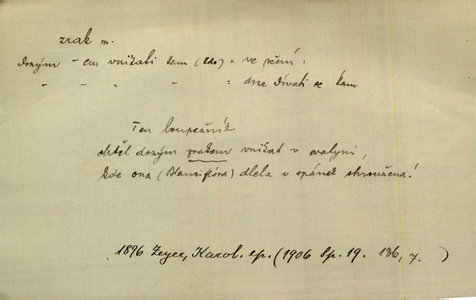 zrak m.
drzým - em vnikati kam (kdo) = ve něčí:
- - - - = drze dívati se kam
Ten loupežník
chtěl drzým zrakem vnikat v svatyni,
kde ona (Blanšflóra) dlela v spánek shroužena!
1896 Zeyer, Karol. ep. (1906 Sp. 19. 136, 7.)